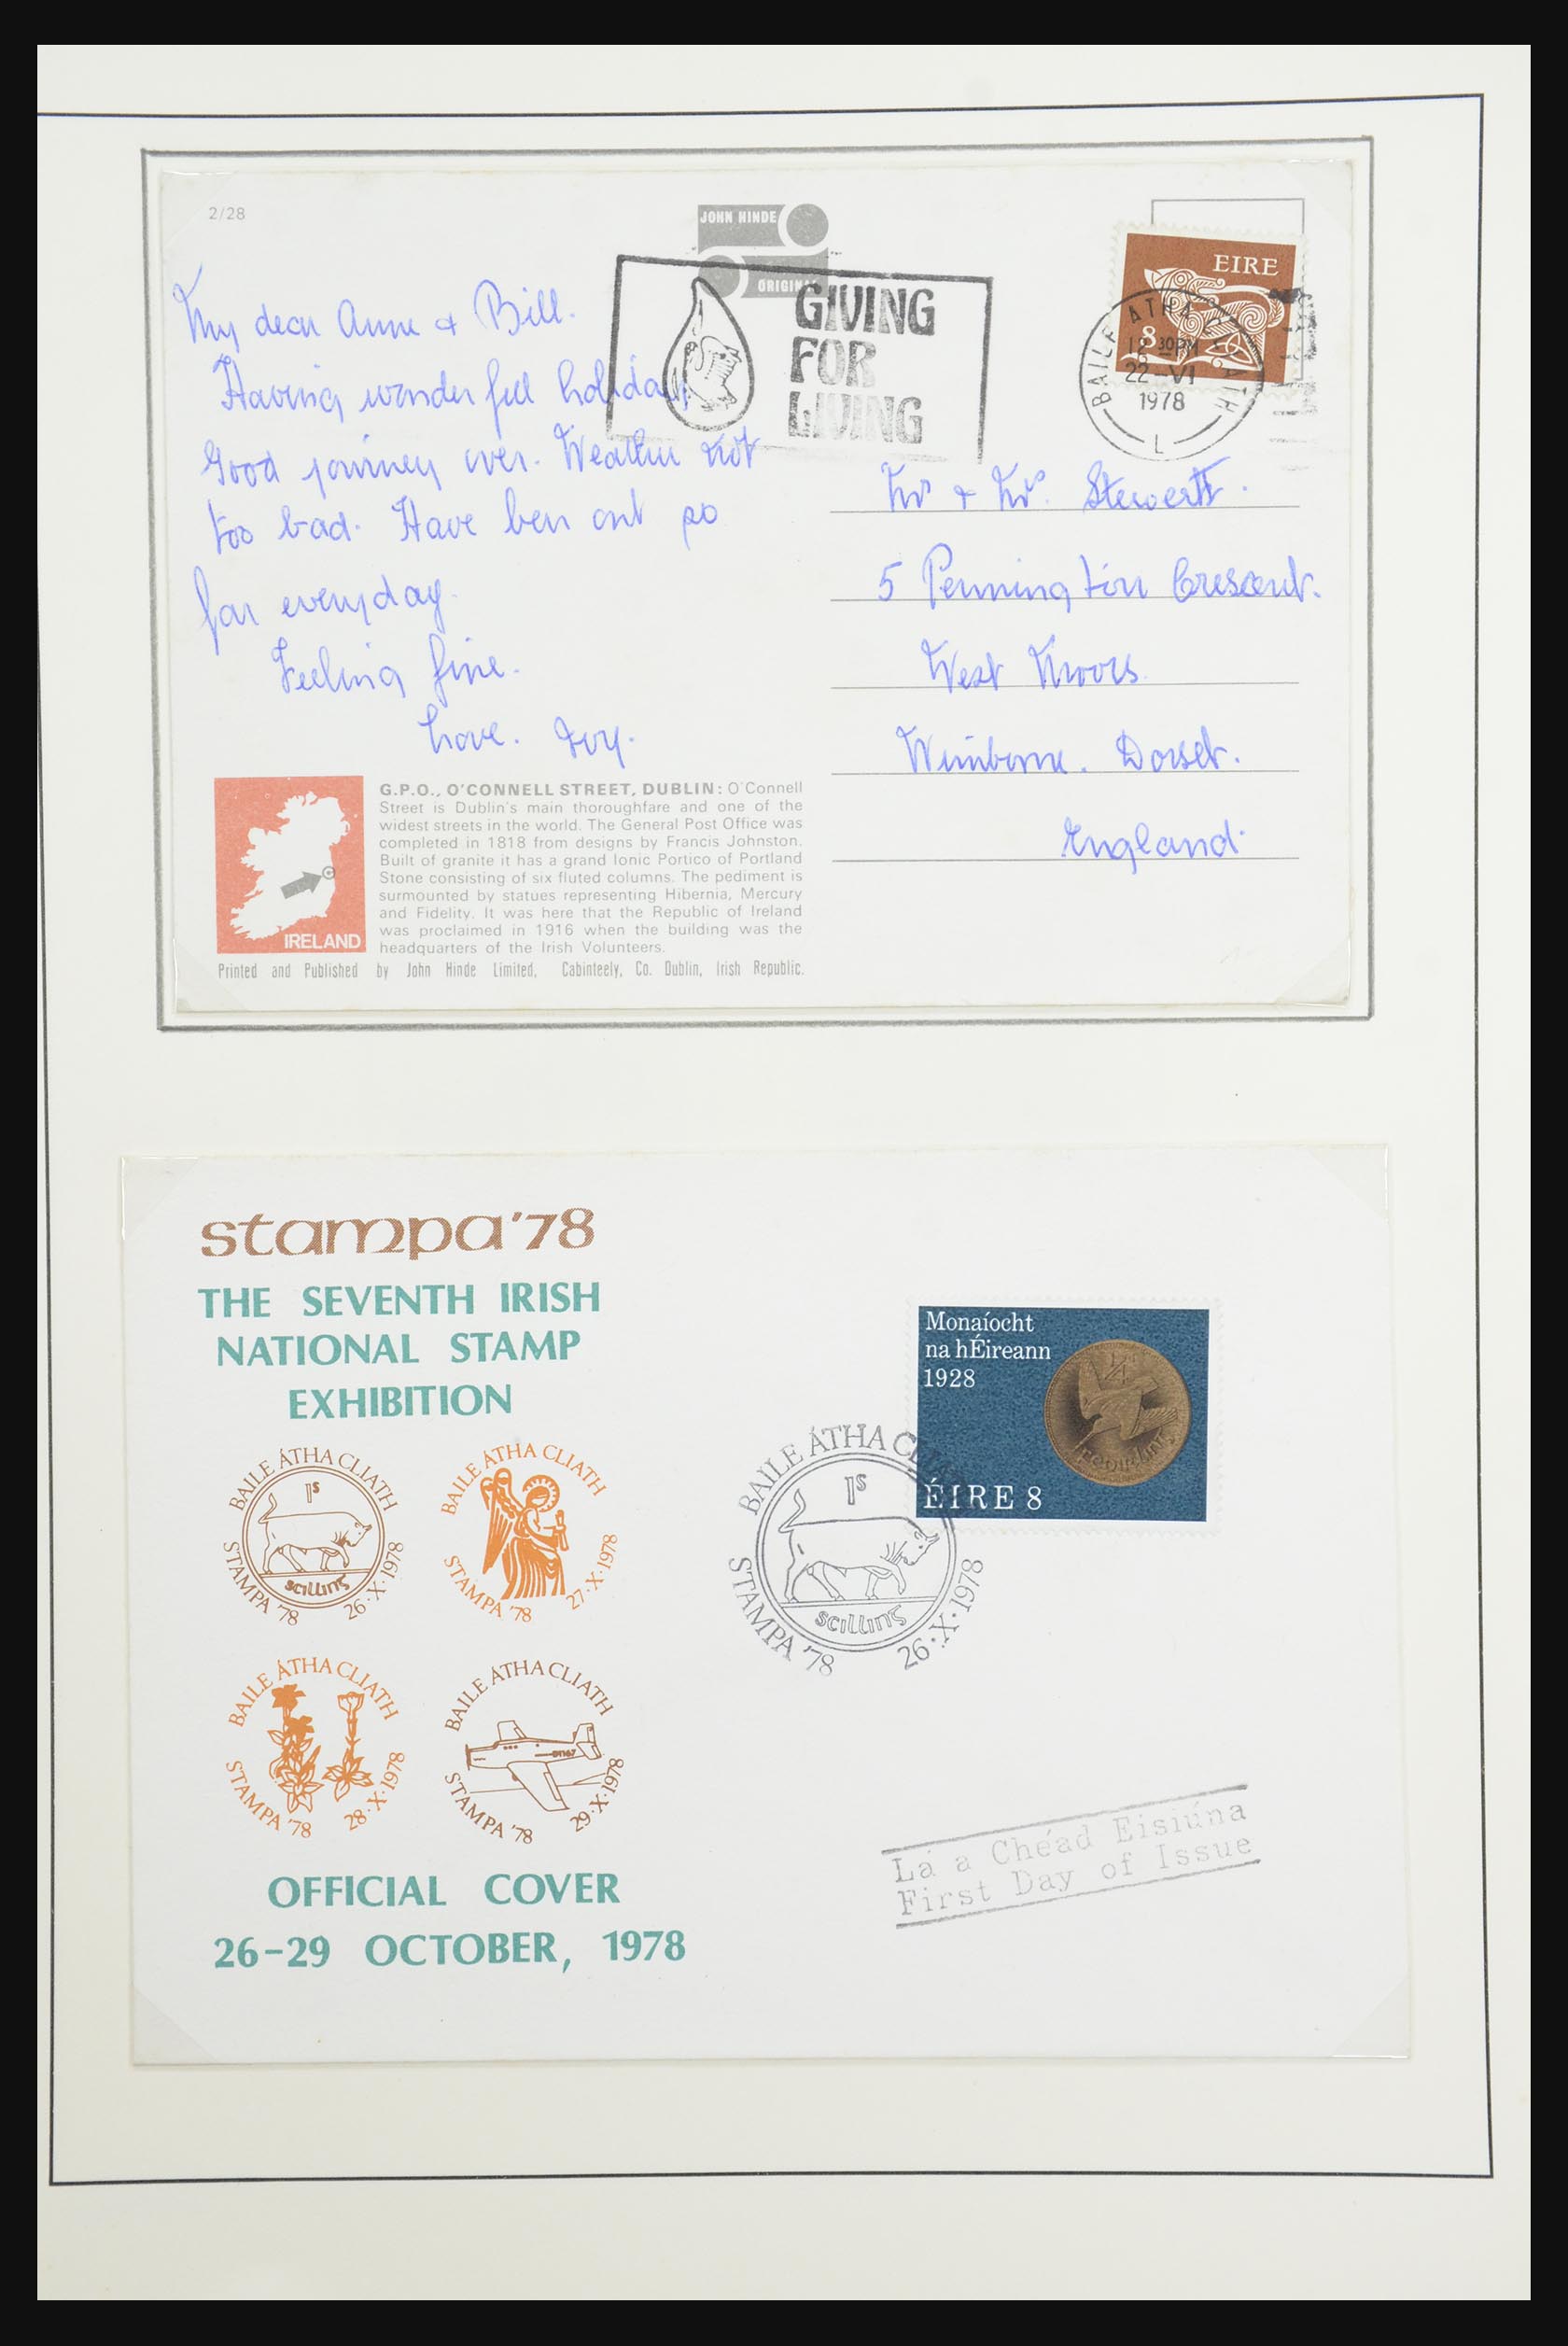 2/28
JOHN HINDE
ORIGINAL
GIVING
FOR
LIVING
EIRE
8
BAILE ÁTHA CLIATH
12 30PM
22 -VI
1978
L
My dear Anne & Bill.
Having wonderfull holiday,
Good journey over. Weather not
too bad. Have ben out so
far everyday.
Feeling fine.
Love. Ivy.
Mr & Mrs. Stewertt.
5 Pennington Crescent.
West Moors.
Wimborne. Dorset.
England.
G.P.O., O'CONNELL STREET, DUBLIN: O'Connell
Street is Dublin's main thoroughfare and one of the
widest streets in the world. The General Post Office was
completed in 1818 from designs by Francis Johnston.
Built of granite it has a grand Ionic Portico of Portland
Stone consisting of six fluted columns. The pediment is
surmounted by statues representing Hibernia, Mercury
and Fidelity. It was here that the Republic of Ireland
was proclaimed in 1916 when the building was the
headquarters of the Irish Volunteers.
IRELAND
Printed and Published by John Hinde Limited, Cabinteely, Co. Dublin, Irish Republic.
stampa '78
THE SEVENTH IRISH
NATIONAL STAMP
EXHIBITION
BAILE ÁTHA CLIATH
1s
scilling
STAMPA '78 26·X·1978
BAILE ÁTHA CLIATH
STAMPA '78 27·X·1978
BAILE ÁTHA CLIATH
STAMPA '78 28·X·1978
BAILE ÁTHA CLIATH
STAMPA '78 29·X·1978
OFFICIAL COVER
26-29 OCTOBER, 1978
Monaíocht
na hÉireann
1928
1/4
feoirling
ÉIRE 8
BAILE ÁTHA CLIATH
1s
scilling
STAMPA '78 26·X·1978
Lá a Chéad Eisiúna
First Day of Issue